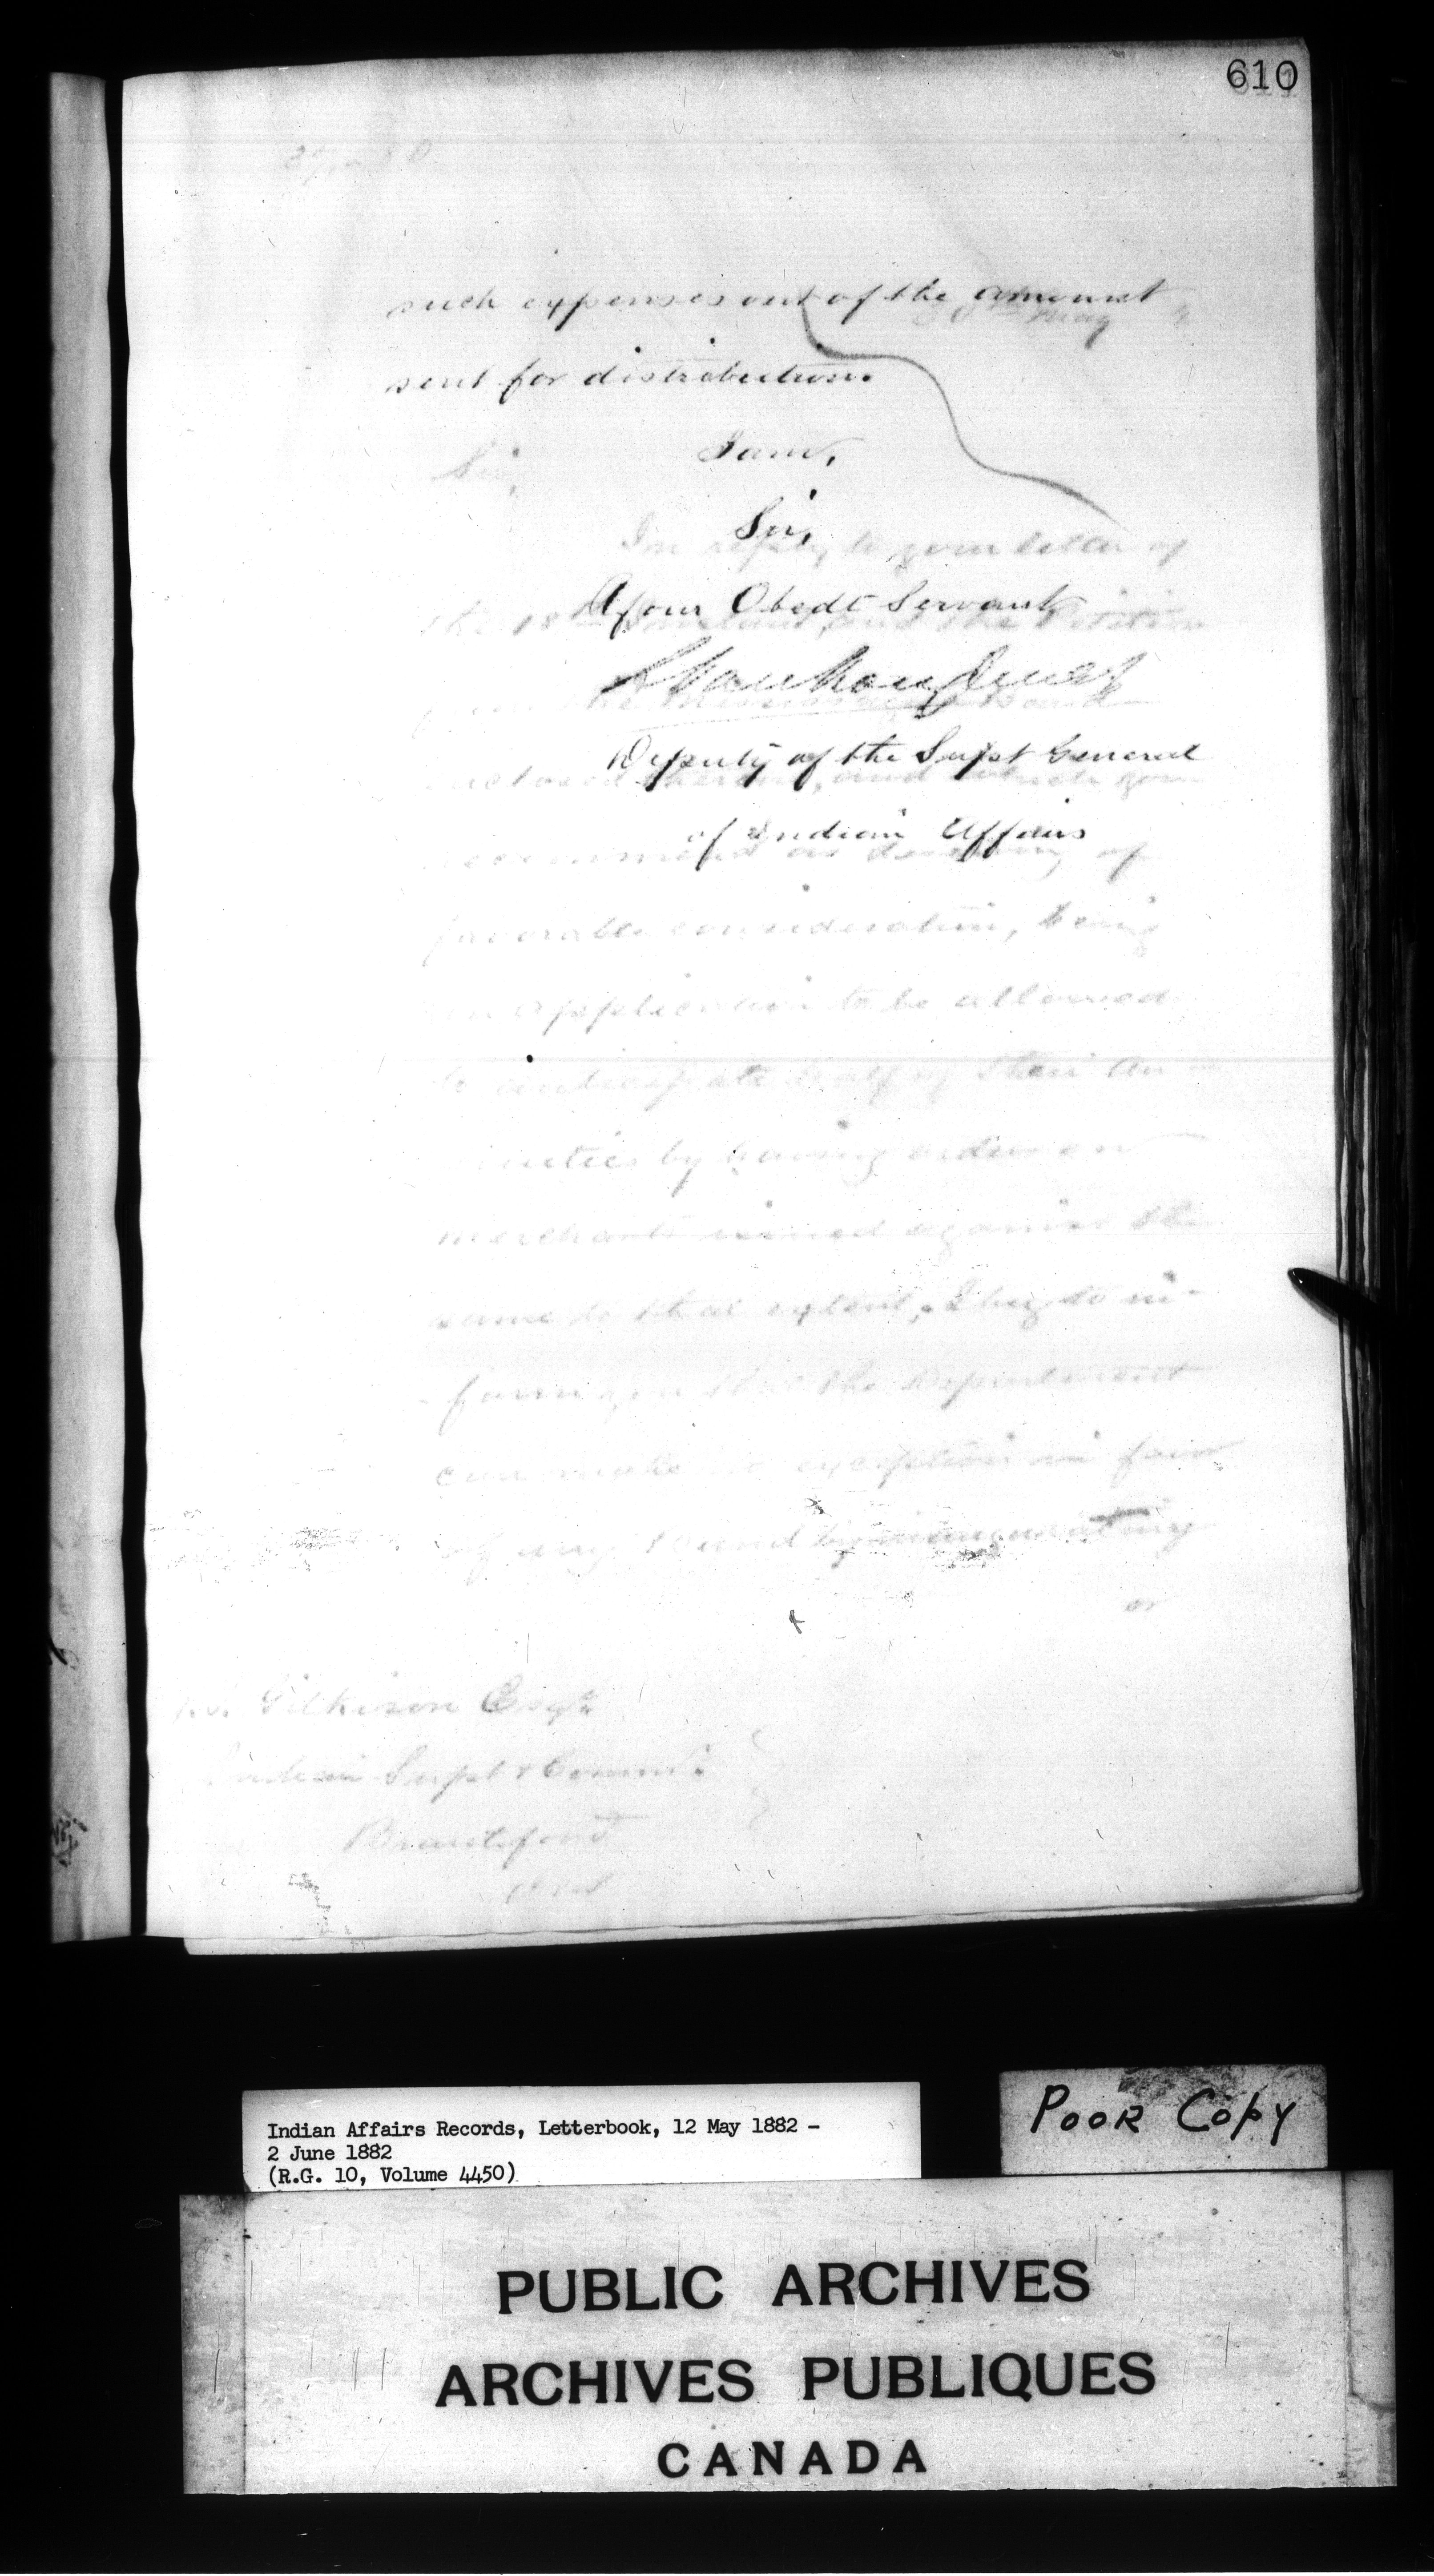 610
such expenses out of the amount
sent for distribution.
I am,
Sir,
Your Obedt Servant
L VanKoughnet
Deputy of the Supt General
of Indian Affairs
30th May
Sir,
In reply to your letter of
the 18th Instant, and the Petition
the Band
and which you
recommend as deserving of
favorable consideration, being
an application to be allowed
to anticipate half of their An-
nuities by having orders on
merchants issued against the
same to that extent, I beg to in-
form you that the Department
can make no exception in favor
of any Band by inaugurating
or
Gilkison Esqr.
Indian Supt & Commr.
Brantford
Ont
Indian Affairs Records, Letterbook, 12 May 1882 -
2 June 1882
(R.G. 10, Volume 4450)
POOR COPY
PUBLIC ARCHIVES
ARCHIVES PUBLIQUES
CANADA